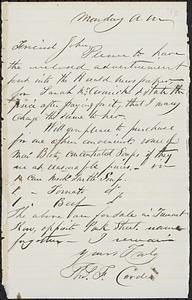 Monday a.m
Friend John
Please to have
the enclosed advertisement
put into the Herald newspaper
for Sarah McCormick & state the
price after paying for it, that I may
charge the same to her.
Will you please to purchase
for me other convenient some of
these Beef, concentrated Soups if they
are at reasonable prices.
Can Mock Turtle Soup
" Tomato do
" Beef do
The above I am for sale in Tremont
Row, opposite Park Street, name
forgotten — I remain
Yours Truly